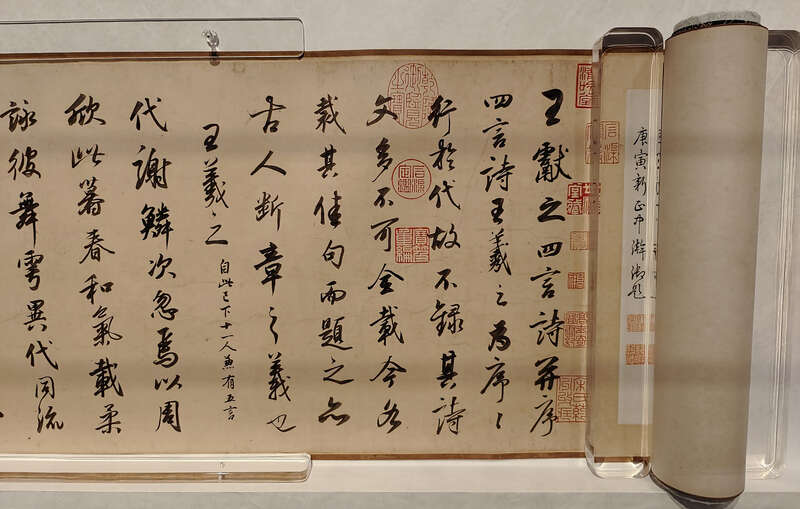 庚寅新正中澣御題
王獻之四言詩并序
四言詩王羲之為序〻
行於代故不錄其詩
文多不可全載今各
裁其佳句而題之亦
古人斷章之義也
王羲之 自此已下十一人兼有五言
代謝鱗次忽焉以周
欣此暮春和氣載柔
詠彼舞雩異代同流